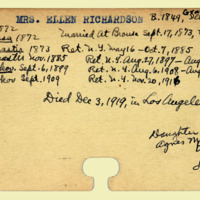 MRS. ELLEN RICHARDSON B. 1849,
1872 Married at Brousa Sept. 17, 1873,
1873 Ret. N.Y. May 16 - Oct. 7, 1885
Nov. 1885 Ret. N.Y. Aug. 27, 1897 - Aug
Nov. Sept. 6, 1899 Ret. N.Y. Aug. 6, 1908 - Aug
Nov. Sept. 1909 Ret. N.Y. Nov. 20, 191
Died Dec 3, 1919, in Los Angeles
Daughter
Agnes M